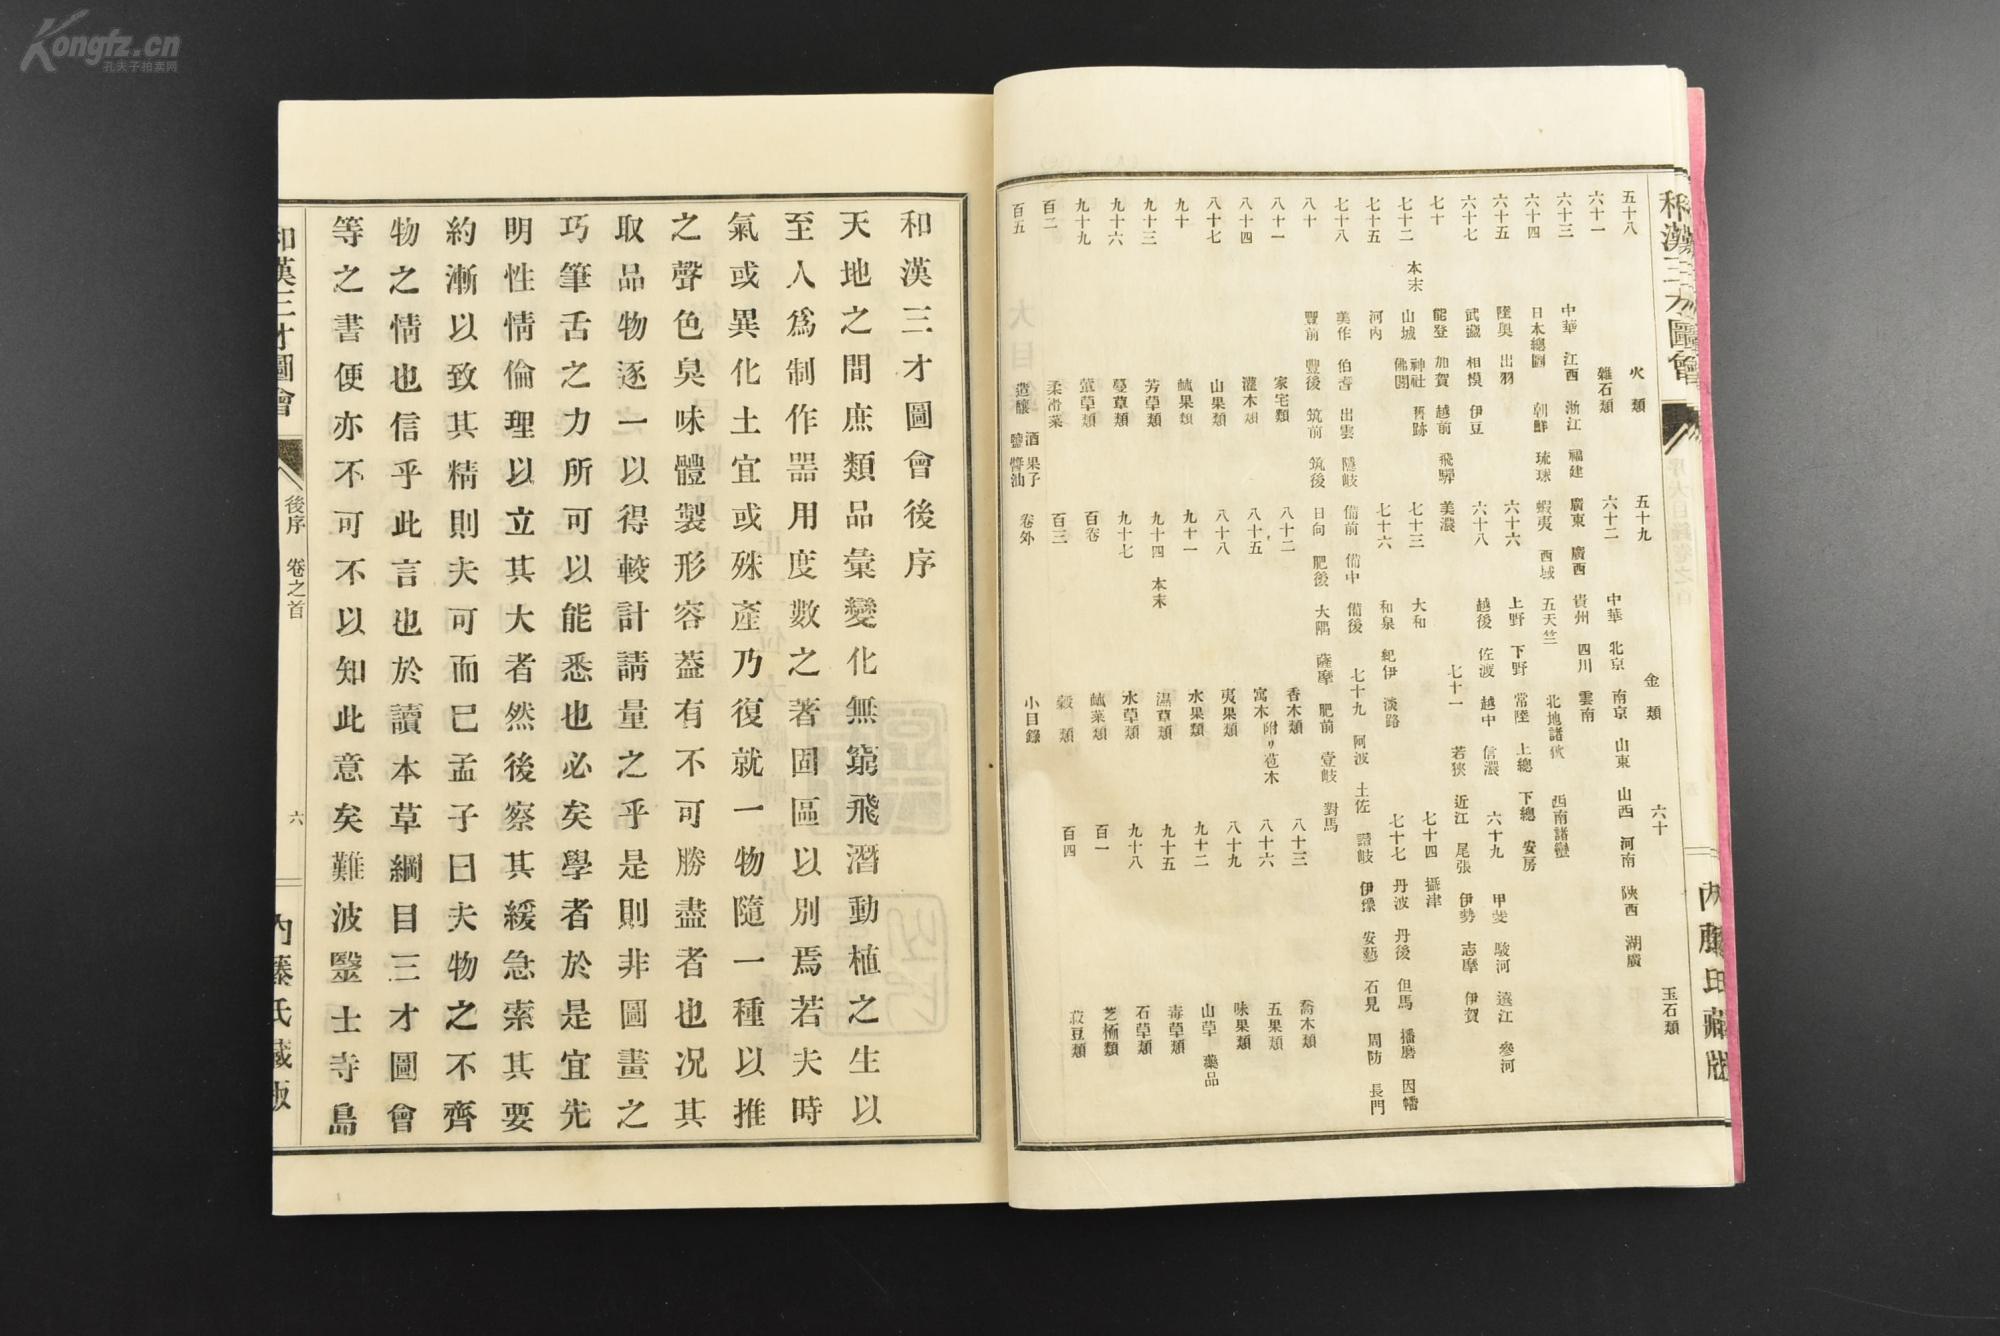 Kongfz.cn
孔夫子拍卖网
和漢三才圖會
五十八 火類 五十九 金類 六十 玉石類
六十一 雜石類 六十二 中華 北京 南京 山東 山西 河南 陝西 湖廣
六十三 中華 江西 浙江 福建 廣東 廣西 貴州 四川 雲南
六十四 日本總圖 朝鮮 琉球 蝦夷 西域 五天竺 北地諸狄 西南諸蠻
六十五 陸奥 出羽 六十六 上野 下野 常陸 上總 下總 安房
六十七 武藏 相模 伊豆 六十八 越後 佐渡 越中 信濃 六十九 甲斐 駿河 遠江 參河
七十 能登 加賀 越前 飛驒 美濃 七十一 若狹 近江 尾張 伊勢 志摩 伊賀
七十二 本末 山城 神社 佛閣 舊跡 七十三 大和 七十四 攝津
七十五 河内 七十六 和泉 紀伊 淡路 七十七 丹波 丹後 但馬 播磨 因幡
七十八 美作 伯耆 出雲 隱岐 備前 備中 備後 七十九 阿波 土佐 讚岐 伊豫 安藝 石見 周防 長門
八十 豐前 豐後 筑前 筑後 日向 肥後 大隅 薩摩 肥前 壹岐 對馬
八十一 家宅類 八十二 香木類 八十三 喬木類
八十四 灌木類 八十五 寓木 附リ苞木 八十六 五果類
八十七 山果類 八十八 夷果類 八十九 味果類
九十 蓏果類 九十一 水果類 九十二 山草 藥品
九十三 芳草類 九十四 本末 濕草類 九十五 毒草類
九十六 蔓草類 九十七 水草類 九十八 石草類
九十九 葷草類 百卷 蓏菜類 百一 芝栭類
百二 柔滑菜 百三 穀類 百四 菽豆類
百五 造釀 酒 果子 鹽 醬油 卷外 小目錄
和漢三才圖會後序
天地之間庶類品彙變化無窮飛潛動植之生以
至人爲制作器用度數之著固區以別焉若夫時
氣或異化土宜或殊產乃復就一物隨一種以推
之聲色臭味體製形容葢有不可勝盡者也况其
取品物逐一以得較計請量之乎是則非圖畫之
巧筆舌之力所可以能悉也必矣學者於是宜先
明性情倫理以立其大者然後察其緩急索其要
約漸以致其精則夫可而已孟子曰夫物之不齊
物之情也信乎此言也於讀本草綱目三才圖會
等之書便亦不可不以知此意矣難波毉士寺島
和漢三才圖會 後序 卷之首 六 内藤氏藏版